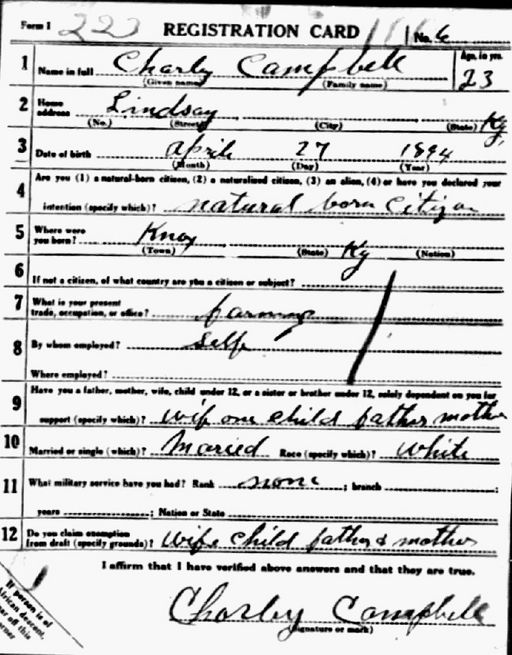 Form 1 223 REGISTRATION CARD No. 6
1 Name in full Charly Campbell Age, in yrs. 23
(Given name) (Family name)
2 Home address Lindsay Ky,
(No.) (Street) (City) (State)
3 Date of birth April 27 1894
(Month) (Day) (Year)
4 Are you (1) a natural-born citizen, (2) a naturalized citizen, (3) an alien, (4) or have you declared your
intention (specify which)? natural born Citizan
5 Where were you born? Knox Ky
(Town) (State) (Nation)
6 If not a citizen, of what country are you a citizen or subject?
7 What is your present trade, occupation, or office? farming
8 By whom employed? Self
Where employed?
9 Have you a father, mother, wife, child under 12, or a sister or brother under 12, solely dependent on you for
support (specify which)? wife one child father mother
10 Married or single (which)? Maried Race (specify which)? White
11 What military service have you had? Rank none ; branch ;
years ; Nation or State
12 Do you claim exemption from draft (specify grounds)? wife child father & mother
I affirm that I have verified above answers and that they are true.
Charley Campbell
(Signature or mark)
If person is of
African descent,
off this
corner